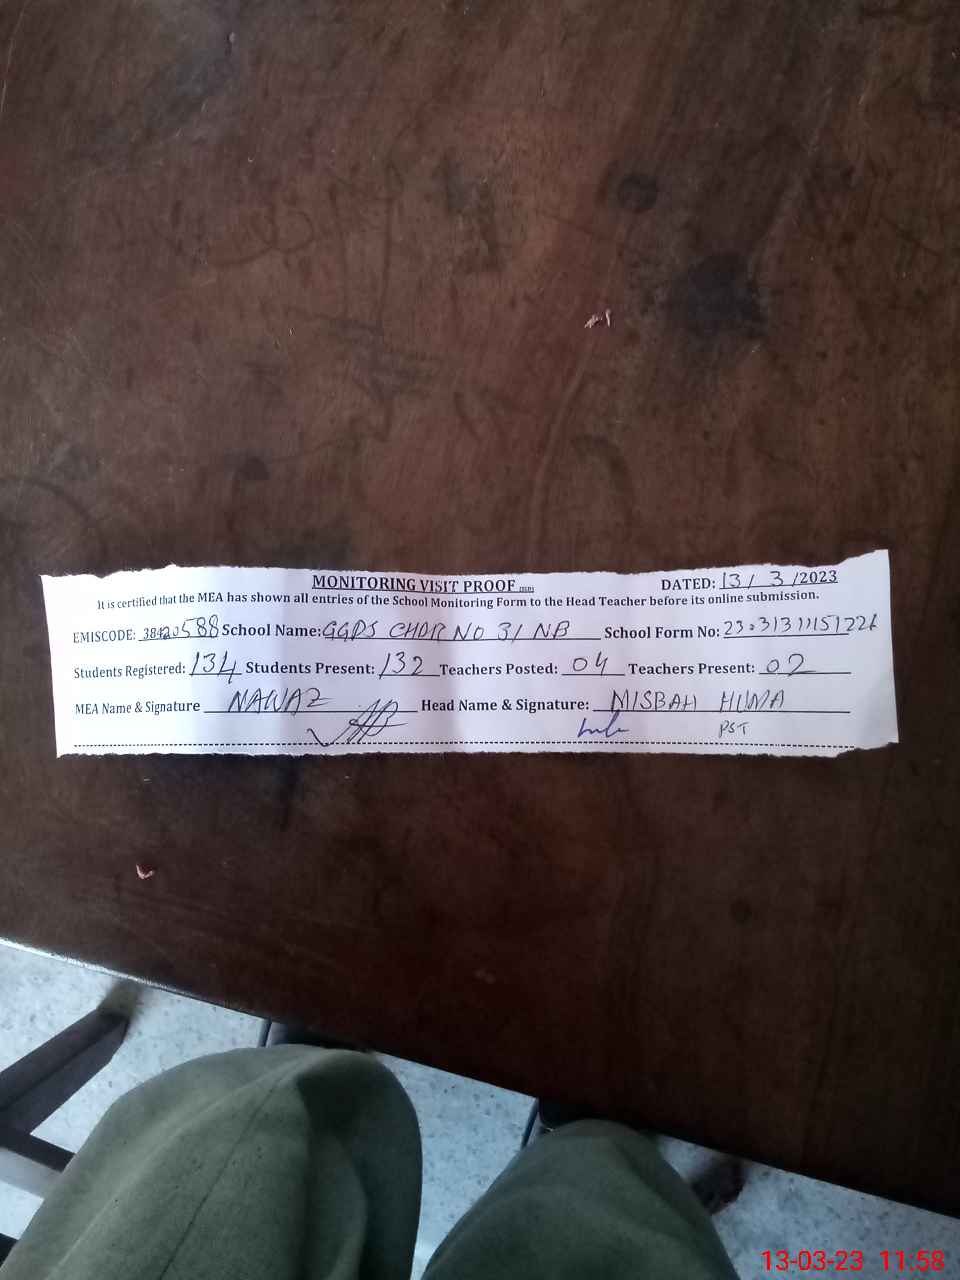 MONITORING VISIT PROOF
DATED: 13/3/2023
It is certified that the MEA has shown all entries of the School Monitoring Form to the Head Teacher before its online submission.
EMISCODE: 38420588 School Name: GGPS CHDR NO 31 NB School Form No:
Students Registered: 134 Students Present: 132 Teachers Posted: 04 Teachers Present: 02
MEA Name & Signature NAWAZ Head Name & Signature: MISBAH HUMA
PST
13-03-23 11:58